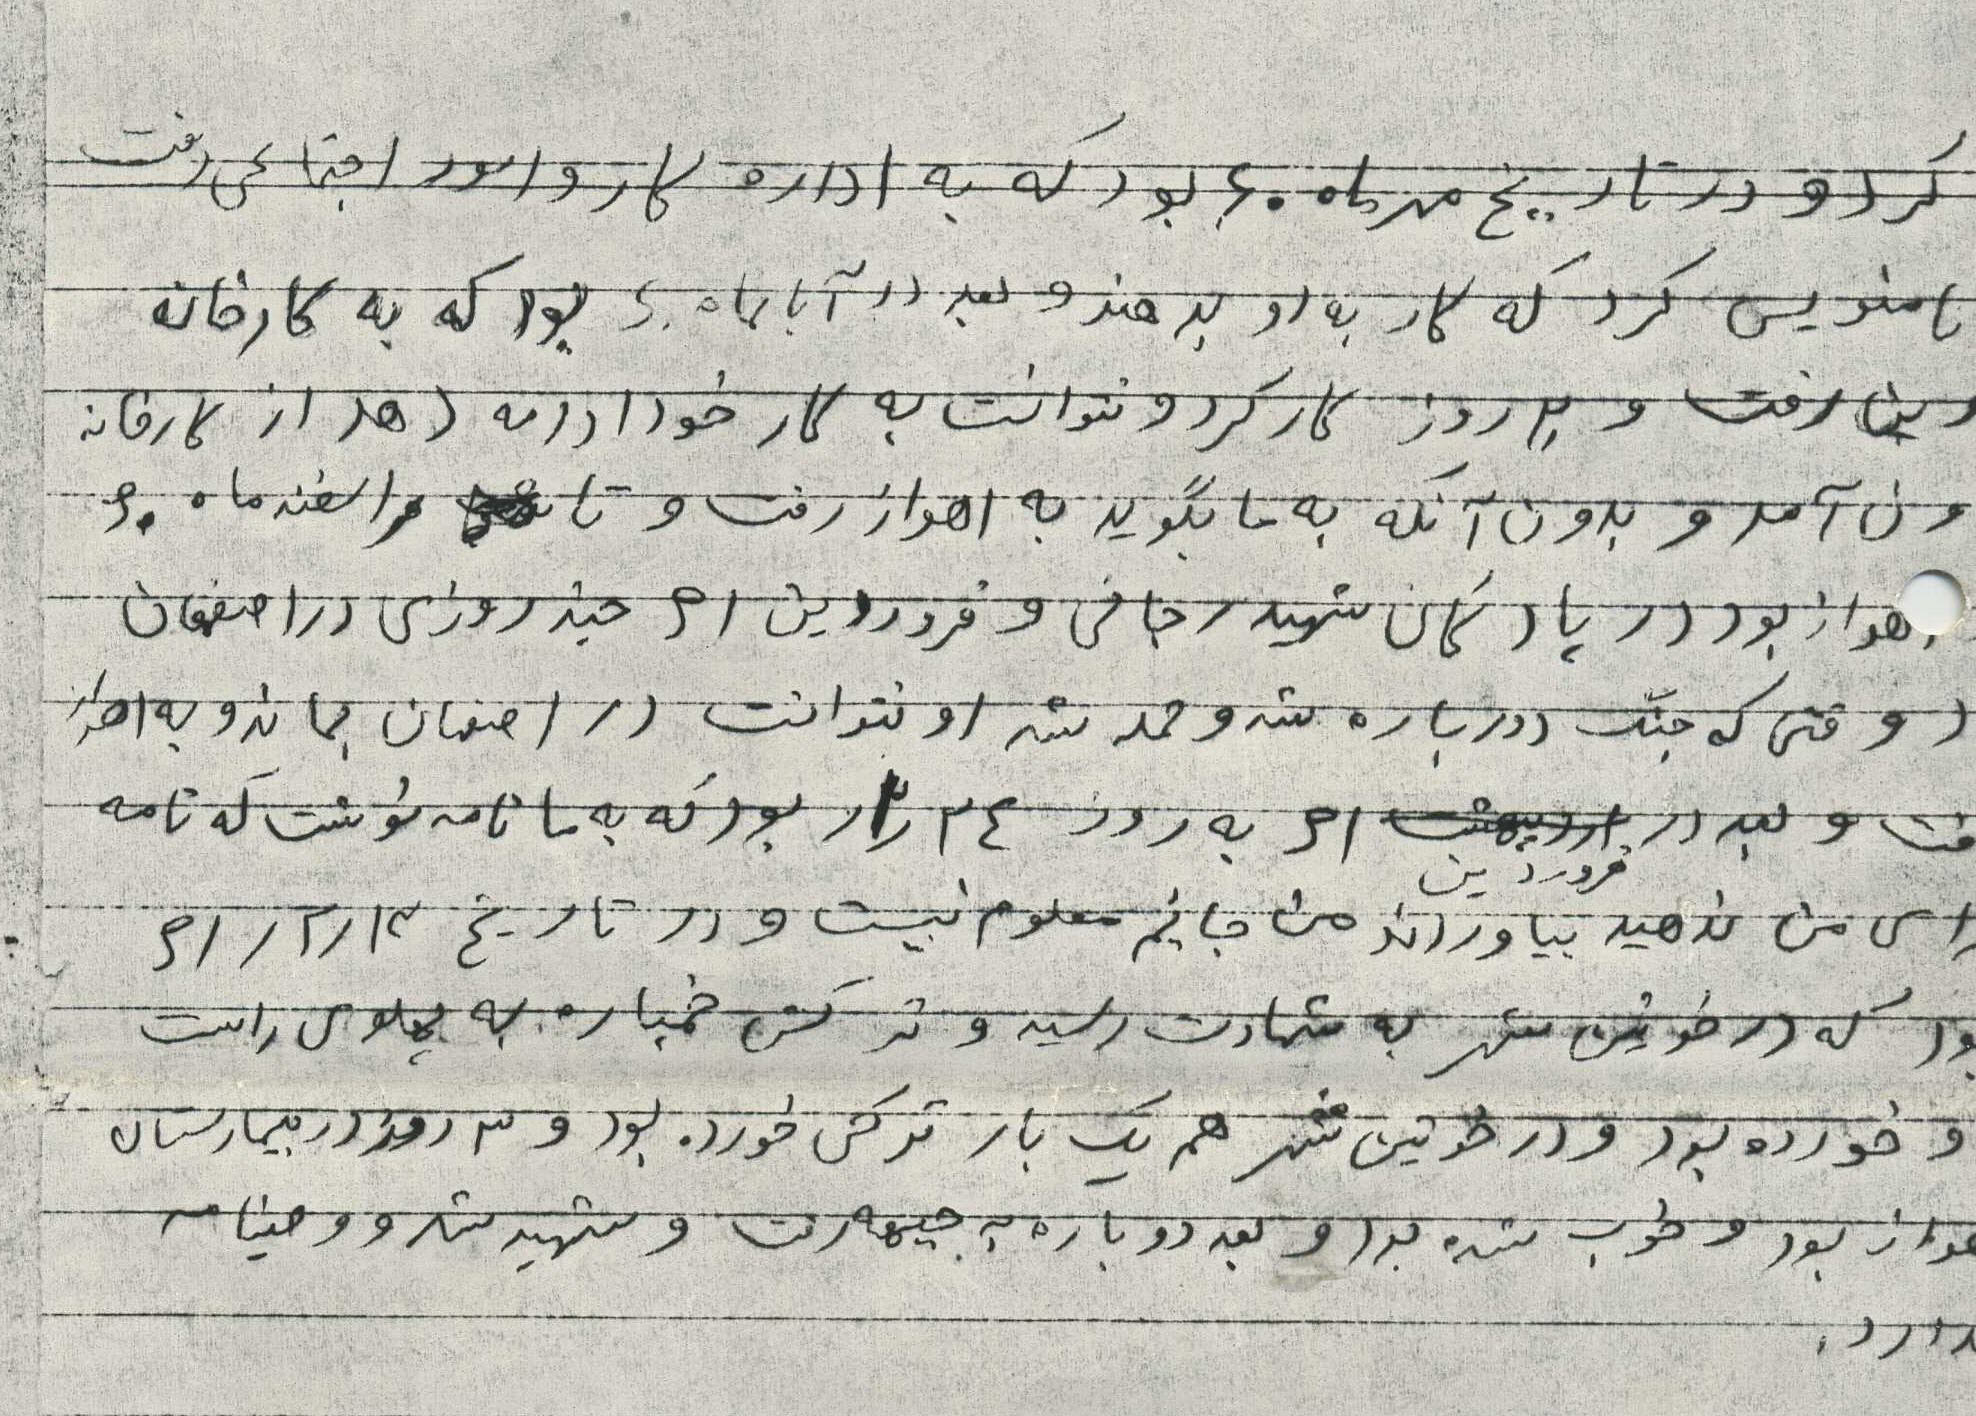 کرد و در تاریخ مهرماه ۶۰ بود که به اداره کار و امور اجتماعی رفت
نامنویسی کرد که کار به او بدهند و بعد در آبانماه ۶۰ بود که به کارخانه
رفت و ۲۰ روز کار کرد و نتوانست به کار خود ادامه دهد از کارخانه
ون آمد و بدون آنکه به ما بگوید به اهواز رفت و تا اسفند ماه ۶۰
اهواز بود در پادگان شهید رجائی و فروردین ۶۱ چند روزی در اصفهان
د وقتی که جنگ دورباره شد و حمله شد او نتوانست در اصفهان بماند و به اهواز
فت و بعد در اردیبهشت ۶۱ به روز ۲۴ بود که به ما نامه نوشت که نامه
فروردین
رای من ندهید بیاوراند من جایم معلوم نیست و در تاریخ ۱۳/۲/۶۱
بود که در خونین شهر به شهادت رسید و ترکش خمپاره به پهلوی راست
و خورده بود و در خونین شهر هم یک بار ترکش خورده بود و ۳ روز در بیمارستان
هواز بود و خوب شده بود و بعد دوباره به جبهه رفت و شهید شد و وصیتنامه
دارد.